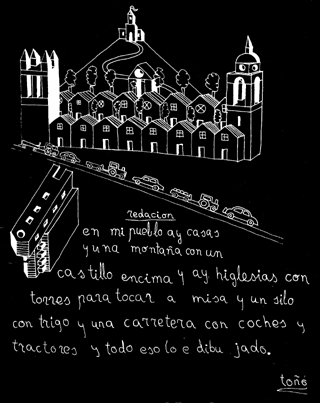 redacion
en mi pueblo ay casas
y una montaña con un
castillo encima y ay higlesias con
torres para tocar a misa y un silo
con trigo y una carretera con coches y
tractores y todo eso lo e dibu jado.
toñé